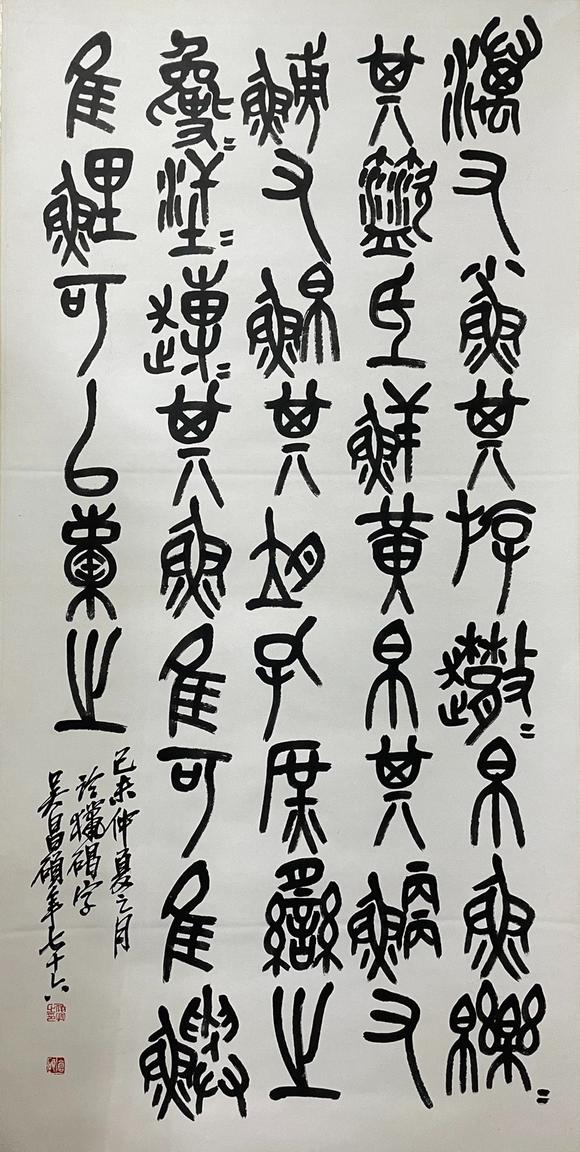 澫又小魚其斿趣=帛魚皪=
其盜氐鮮黃帛其鯾又
鱄又鮊其胡孔庶臠之
㚟=汗=趙其魚隹可隹鱮
隹鯉可以橐之
己未仲夏之月
獵碣字
吳昌碩年七十六